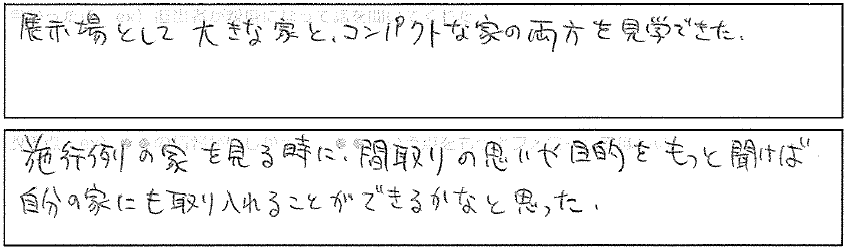 展示場として大きな家と、コンパクトな家の両方を見学できた。
施行例の家を見る時に、間取りの思いや目的をもっと聞けば
自分の家にも取り入れることができるかなと思った。